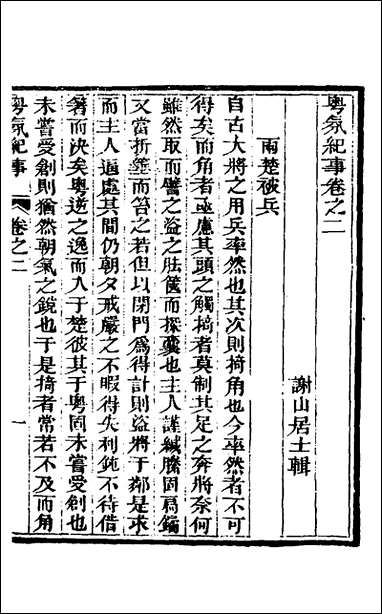 粵氛紀事卷之二
謝山居士輯
兩楚被兵
自古大將之用兵率然也其次則掎角也今率然者不可
得矣而角者亟慮其頭之觸掎者莫制其足之奔將奈何
雖然取而譬之盜之胠篋而探囊也主人謹緘縢固扃鐍
又當折箠而笞之若但以閉門為得計則盜將于鄰是求
而主人逼處其間仍朝夕戒嚴之不暇得失利鈍不待借
箸而決矣粵逆之逸而入于楚彼其于粵固未嘗受創也
未嘗受創則猶然朝氣之銳也于是掎者常若不及而角
粵氛紀事
卷之二
一